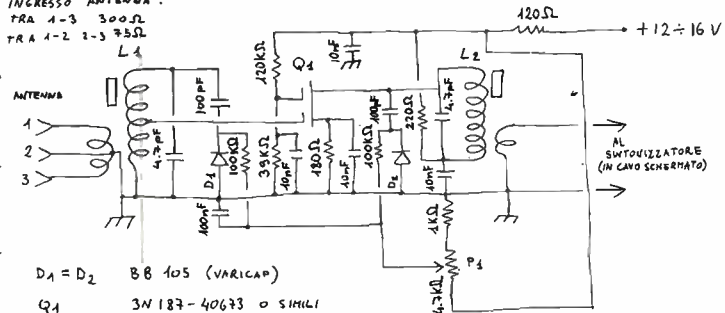 INGRESSO ANTENNA:
TRA 1-3 300Ω
TRA 1-2 2-3 75Ω
L1
ANTENNA
1
2
3
4.7pF
100pF
D1
100KΩ
100nF
120KΩ
39KΩ
10nF
10nF
Q1
180Ω
10nF
100pF
100KΩ
D2
220Ω
4.7pF
10nF
L2
120Ω
+12÷16 V
1KΩ
P1
4.7KΩ
AL
SINTONIZZATORE
(IN CAVO SCHERMATO)
D1 = D2 BB 105 (VARICAP)
Q1 3N 187-40673 O SIMILI